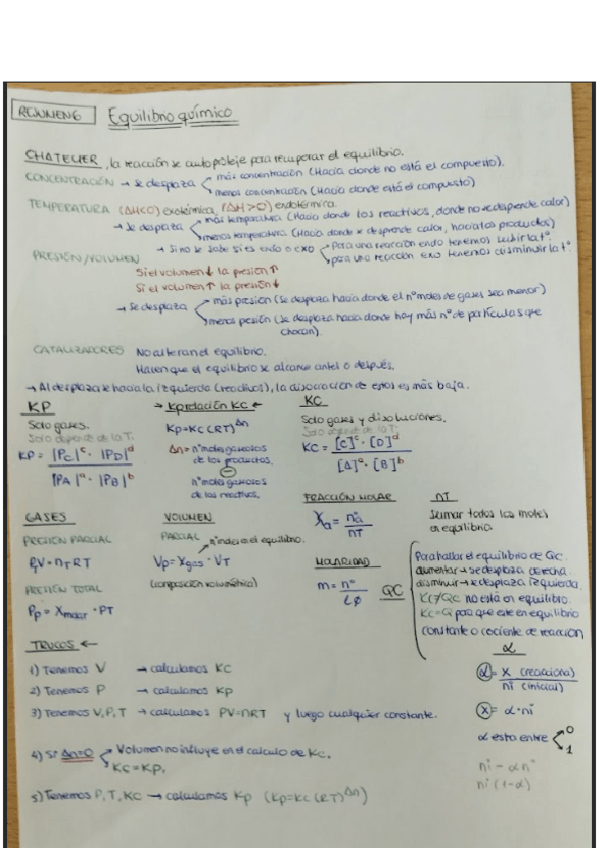 RESUMEN 6 Equilibrio químico
CHATELIER, la reacción se autoproteje para recuperar el equilibrio.
CONCENTRACIÓN → se desplaza
más concentración (Hacia donde no está el compuesto).
menos concentración (Hacia donde está el compuesto)
TEMPERATURA (ΔH<0) exotérmica, (ΔH>0) endotérmica.
→ Se desplaza
más temperatura (Hacia donde los reactivos, donde no se desprende calor)
menos temperatura (Hacia donde se desprende calor, hacia los productos)
→ Si no se sabe si es endo o exo
Para una reacción endo tenemos subir la tª.
para una reacción exo tenemos disminuir la tª.
PRESIÓN/VOLUMEN
Si el volumen ↓ la presión ↑
Si el volumen ↑ la presión ↓
→ Se desplaza
más presión (se desplaza hacia donde el nº moles de gases sea menor)
menos presión (se desplaza hacia donde hay más nº de partículas que
chocan).
CATALIZADORES No alteran el equilibrio.
Hacen que el equilibrio se alcance antes o después.
→ Al desplazarse hacia la izquierda (reactivos), la disociación de estos es más baja.
KP
Solo gases.
Solo depende de la T.
KP = |PC|ᶜ · |PD|ᵈ
|PA|ᵃ · |PB|ᵇ
→ Kp relación KC ←
Kp = KC (RT)^Δn
Δn = nº moles gaseosos
de los productos.
−
nº moles gaseosos
de los reactivos.
KC
Solo gases y disoluciones.
Solo depende de la T.
KC = [C]ᶜ · [D]ᵈ
[A]ᵃ · [B]ᵇ
FRACCIÓN MOLAR
Xa = na
nT
nT
Sumar todos los moles
en equilibrio.
GASES
PRESIÓN PARCIAL
PV = nT RT
PRESIÓN TOTAL
Pp = Xmolar · PT
VOLUMEN
PARCIAL
nº inicio en el equilibrio.
Vp = Xgas · VT
(composición volumétrica)
MOLARIDAD
m = nº
QC
Para hallar el equilibrio de QC.
aumentar → se desplaza derecha.
disminuir → se desplaza izquierda.
KC≠QC no está en equilibrio.
KC=Q para que esté en equilibrio
constante o cociente de reacción
TRUCOS ←
1) Tenemos V → calculamos KC
2) Tenemos P → calculamos Kp
3) Tenemos V, P, T → calculamos PV=nRT y luego cualquier constante.
4) Si Δn=0
Volumen no influye en el calculo de KC.
KC = KP.
5) Tenemos P, T, KC → calculamos Kp (Kp=KC (RT)^Δn)
α
α = x (reacciona)
ni (inicial)
x = α · ni
α esta entre
0
1
ni − αnº
ni (1−α)